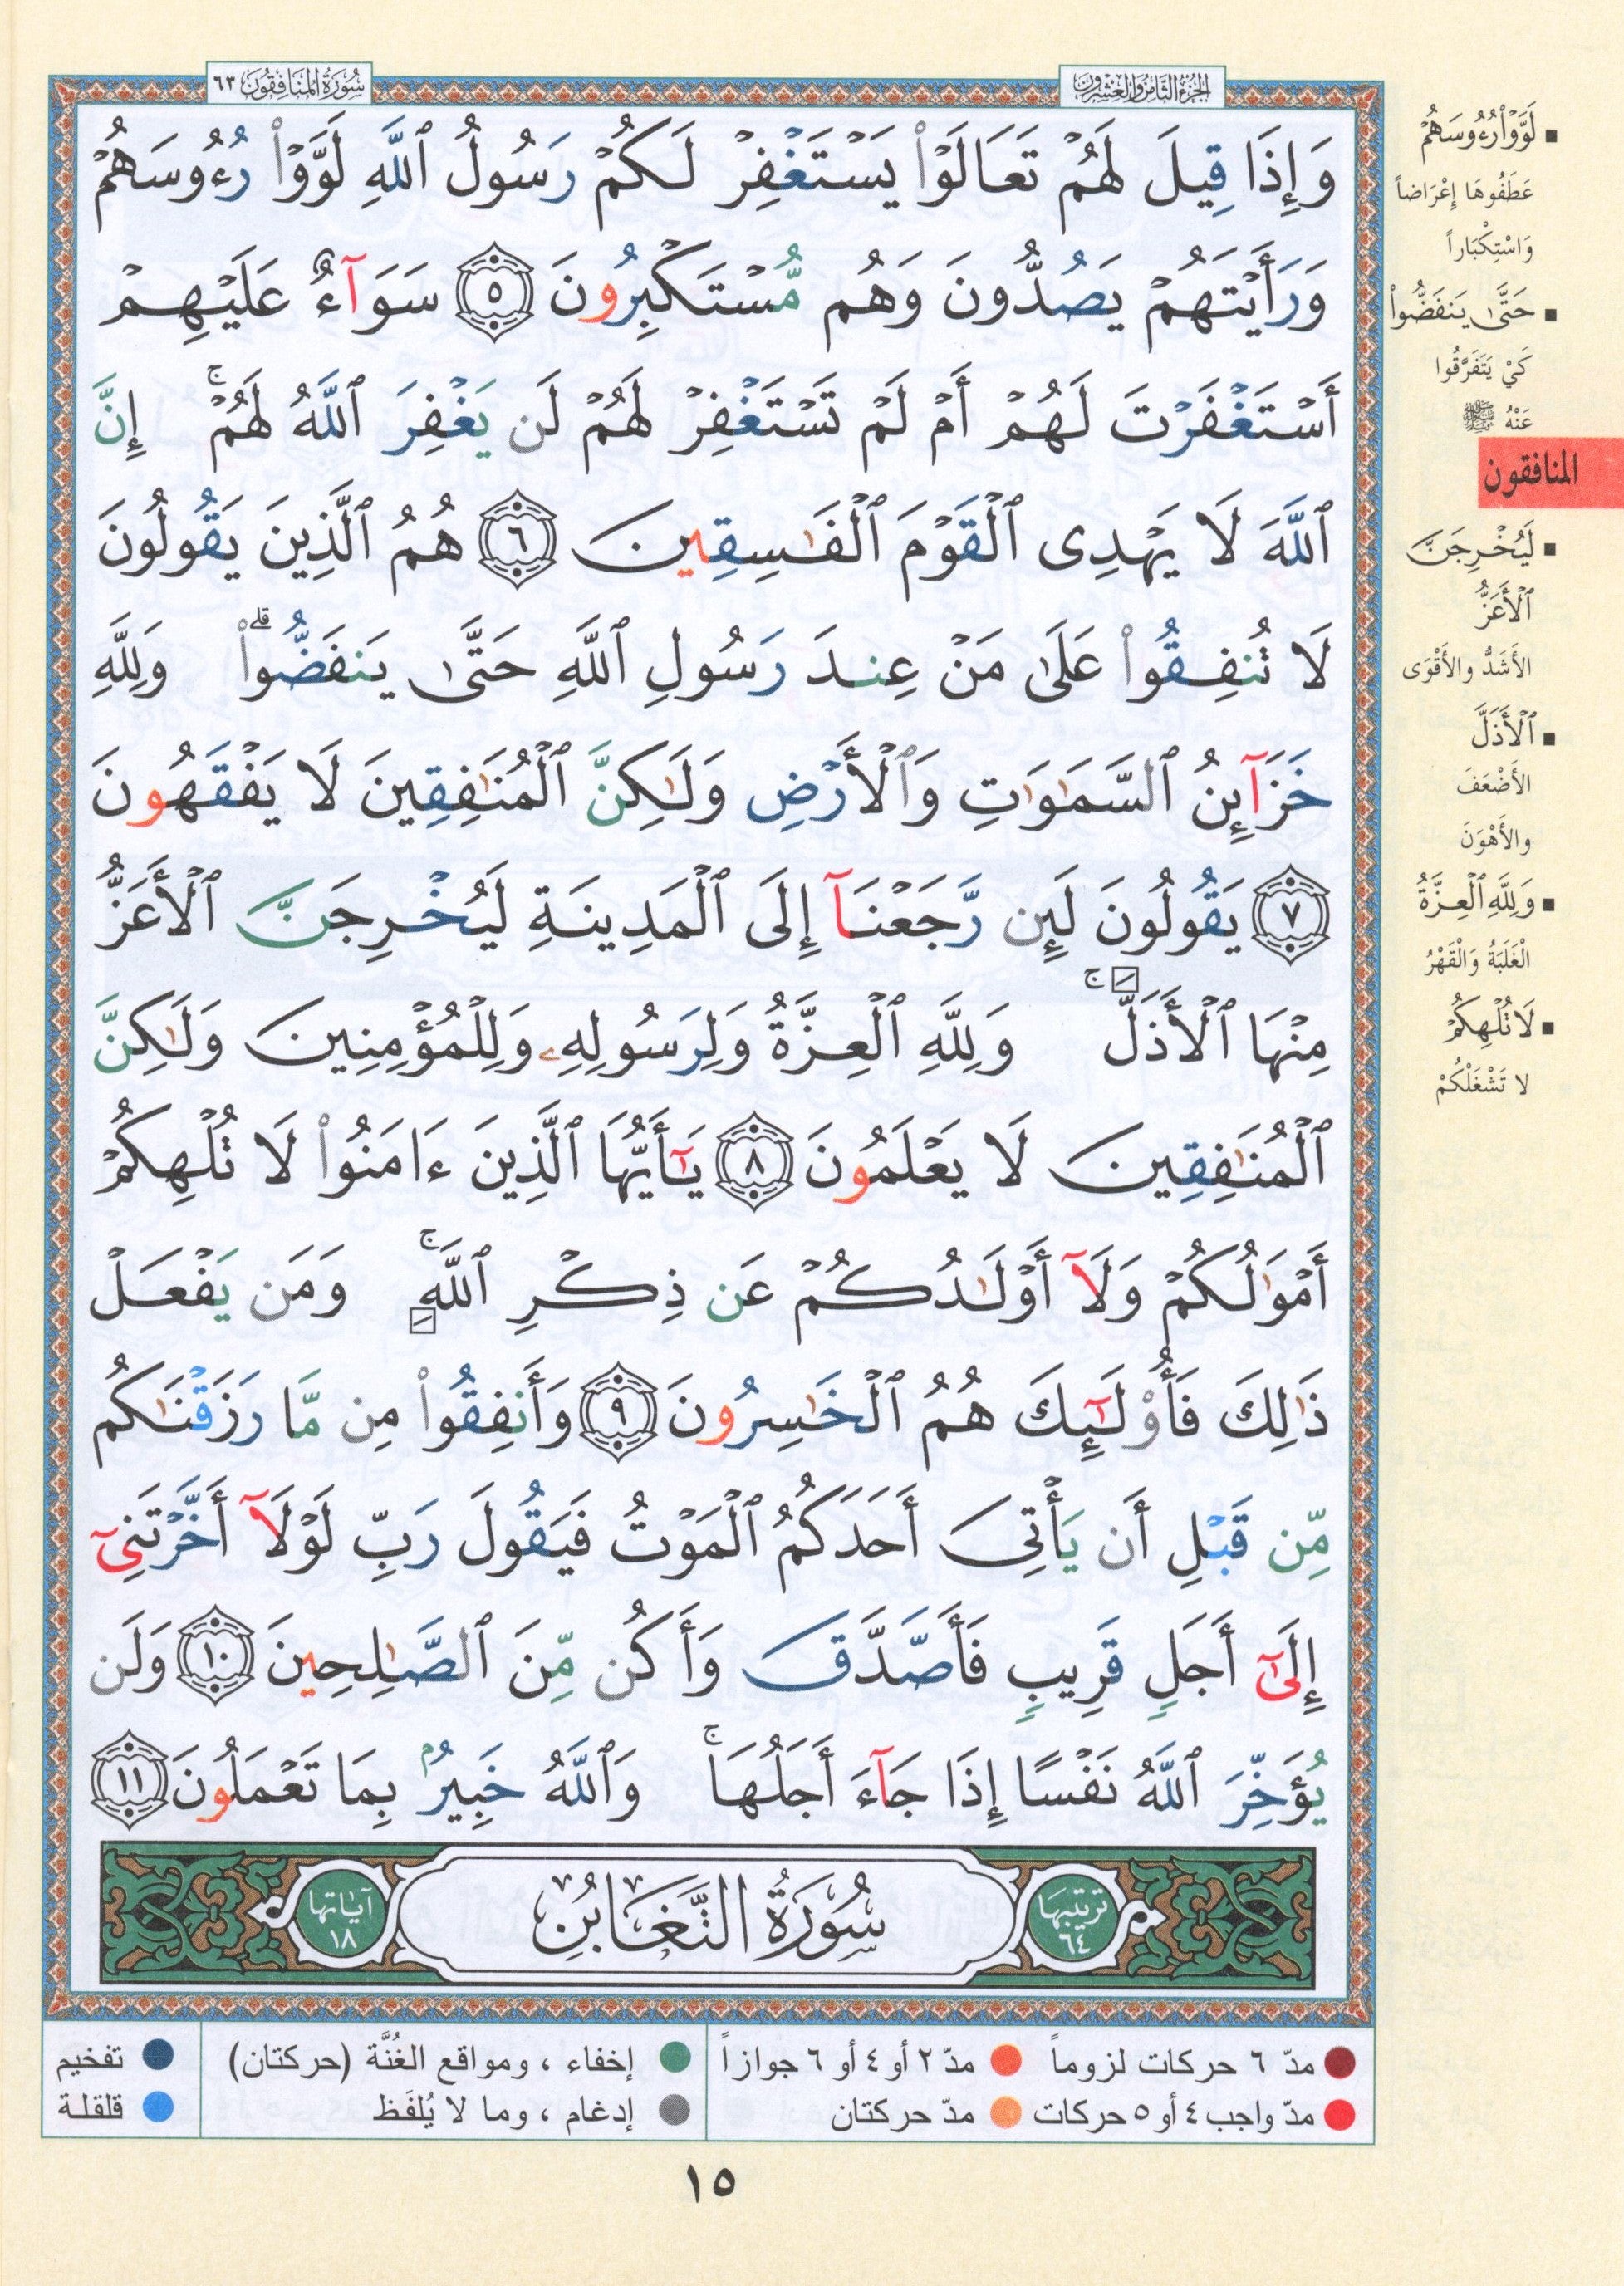 سُورَةُ المُنَافِقُونَ ٦٣
الجُزْءُ الثَّامِنُ وَالعِشْرُونَ
وَإِذَا قِيلَ لَهُمْ تَعَالَوْا۟ يَسْتَغْفِرْ لَكُمْ رَسُولُ ٱللَّهِ لَوَّوْا۟ رُءُوسَهُمْ
وَرَأَيْتَهُمْ يَصُدُّونَ وَهُم مُّسْتَكْبِرُونَ ٥ سَوَآءٌ عَلَيْهِمْ
أَسْتَغْفَرْتَ لَهُمْ أَمْ لَمْ تَسْتَغْفِرْ لَهُمْ لَن يَغْفِرَ ٱللَّهُ لَهُمْ ۚ إِنَّ
ٱللَّهَ لَا يَهْدِى ٱلْقَوْمَ ٱلْفَـٰسِقِينَ ٦ هُمُ ٱلَّذِينَ يَقُولُونَ
لَا تُنفِقُوا۟ عَلَىٰ مَنْ عِندَ رَسُولِ ٱللَّهِ حَتَّىٰ يَنفَضُّوا۟ ۗ وَلِلَّهِ
خَزَآئِنُ ٱلسَّمَـٰوَٰتِ وَٱلْأَرْضِ وَلَـٰكِنَّ ٱلْمُنَـٰفِقِينَ لَا يَفْقَهُونَ
٧ يَقُولُونَ لَئِن رَّجَعْنَآ إِلَى ٱلْمَدِينَةِ لَيُخْرِجَنَّ ٱلْأَعَزُّ
مِنْهَا ٱلْأَذَلَّ ۚ وَلِلَّهِ ٱلْعِزَّةُ وَلِرَسُولِهِۦ وَلِلْمُؤْمِنِينَ وَلَـٰكِنَّ
ٱلْمُنَـٰفِقِينَ لَا يَعْلَمُونَ ٨ يَـٰٓأَيُّهَا ٱلَّذِينَ ءَامَنُوا۟ لَا تُلْهِكُمْ
أَمْوَٰلُكُمْ وَلَآ أَوْلَـٰدُكُمْ عَن ذِكْرِ ٱللَّهِ ۚ وَمَن يَفْعَلْ
ذَٰلِكَ فَأُو۟لَـٰٓئِكَ هُمُ ٱلْخَـٰسِرُونَ ٩ وَأَنفِقُوا۟ مِن مَّا رَزَقْنَـٰكُم
مِّن قَبْلِ أَن يَأْتِىَ أَحَدَكُمُ ٱلْمَوْتُ فَيَقُولَ رَبِّ لَوْلَآ أَخَّرْتَنِىٓ
إِلَىٰٓ أَجَلٍ قَرِيبٍ فَأَصَّدَّقَ وَأَكُن مِّنَ ٱلصَّـٰلِحِينَ ١٠ وَلَن
يُؤَخِّرَ ٱللَّهُ نَفْسًا إِذَا جَآءَ أَجَلُهَا ۚ وَٱللَّهُ خَبِيرٌۢ بِمَا تَعْمَلُونَ ١١
ترتيبها ٦٤
سُورَةُ التَّغَابُنِ
آياتها ١٨
لَوَّوْا۟ رُءُوسَهُمْ
عَطَفُوهَا إِعْرَاضاً
وَاسْتِكْبَاراً
حَتَّىٰ يَنفَضُّوا۟
كَيْ يَتَفَرَّقُوا
عَنْهُ ﷺ
المنافقون
لَيُخْرِجَنَّ
ٱلْأَعَزُّ
الأَشَدُّ والأَقْوَى
ٱلْأَذَلَّ
الأَضْعَفَ
والأَهْوَنَ
وَلِلَّهِ ٱلْعِزَّةُ
الْغَلَبَةُ وَالْقَهْرُ
لَا تُلْهِكُمْ
لا تَشْغَلْكُمْ
مدّ ٦ حركات لزوماً
مدّ ٢ أو ٤ أو ٦ جوازاً
إخفاء ، ومواقع الغُنَّة (حركتان)
تفخيم
مدّ واجب ٤ أو ٥ حركات
مدّ حركتان
إدغام ، وما لا يُلفَظ
قلقلة
١٥